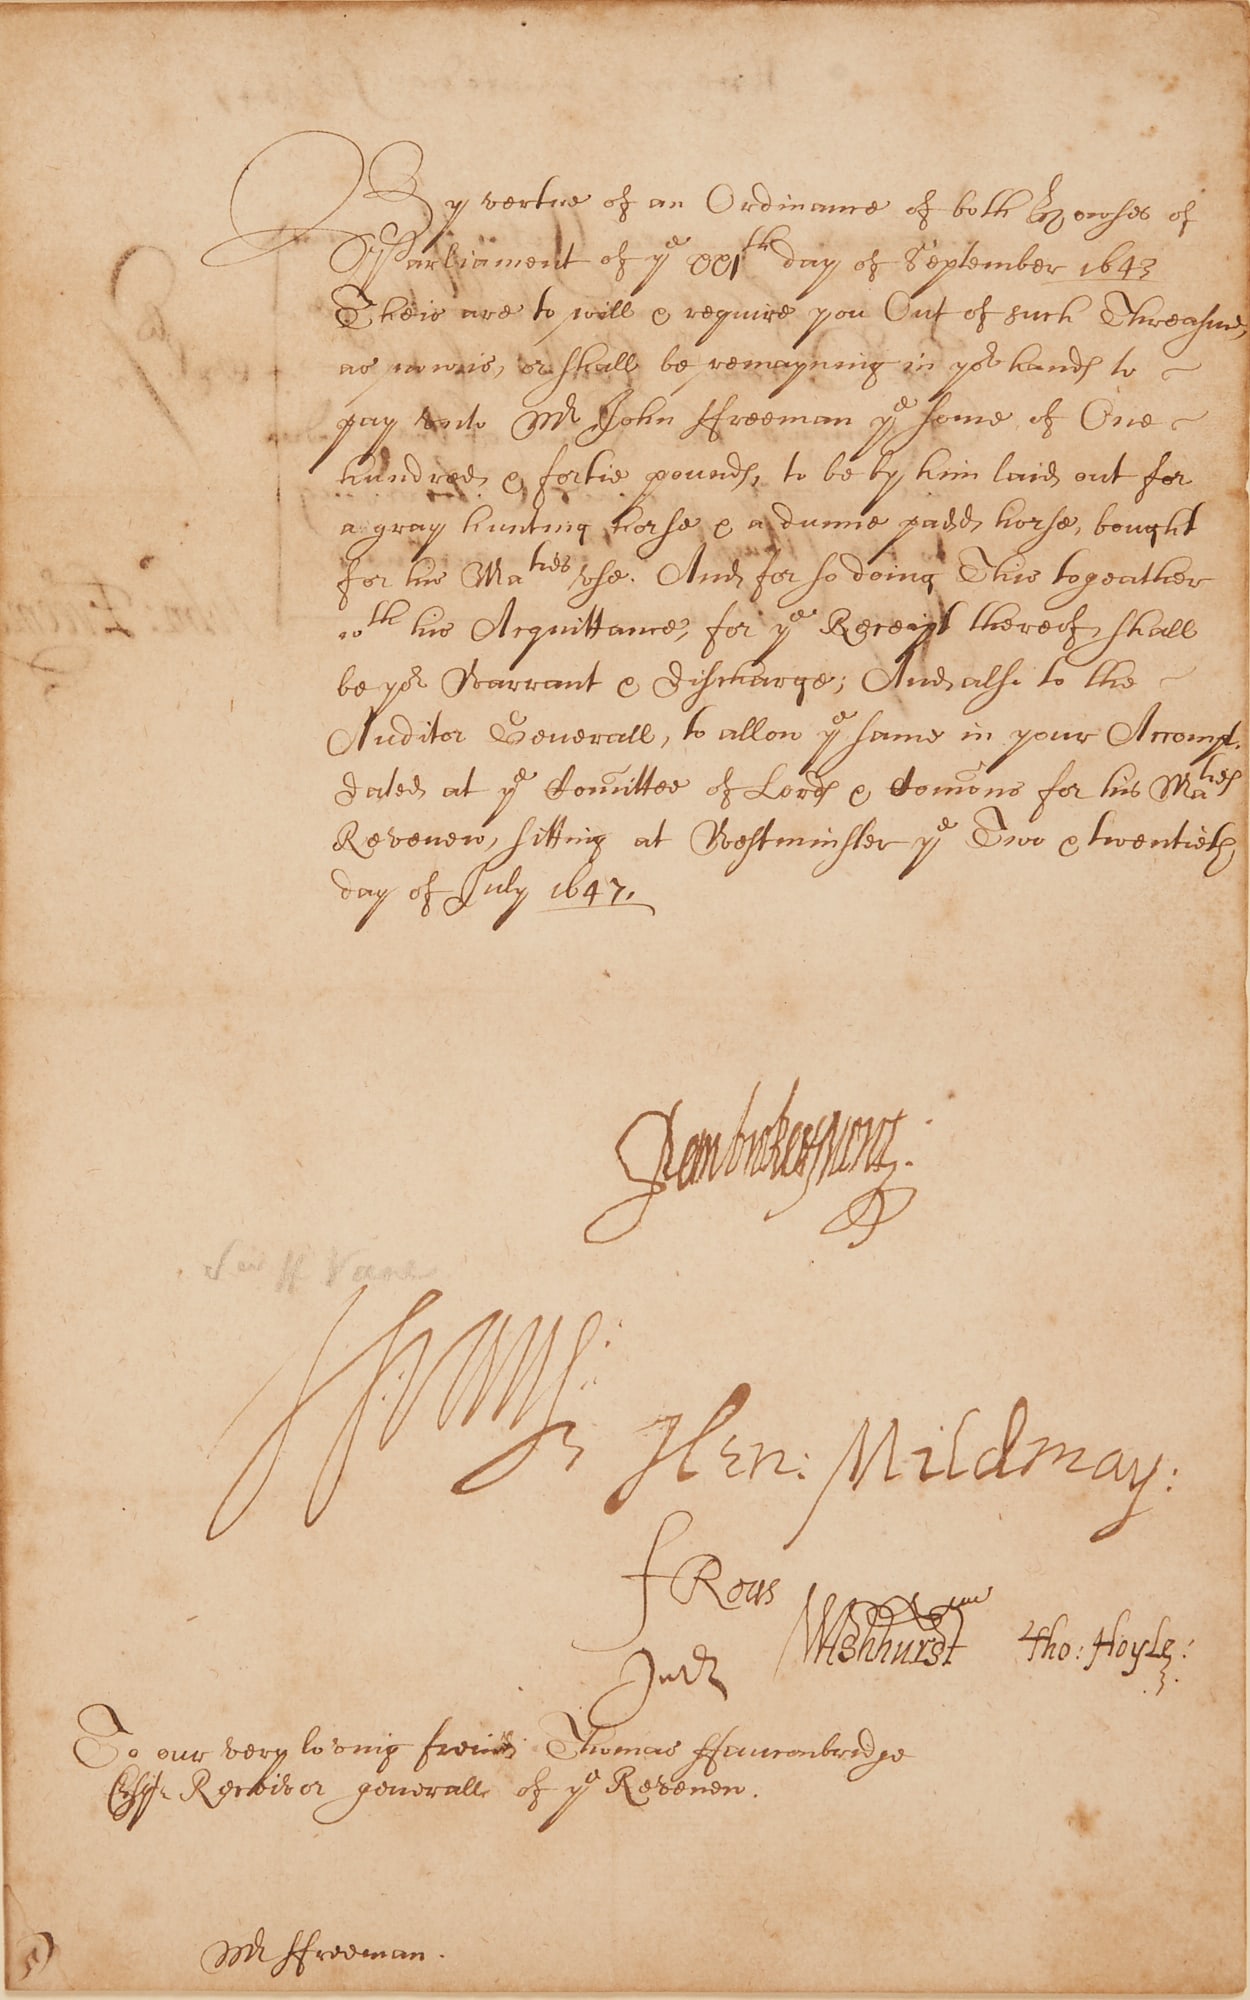 By vertue of an Ordinance of both Howses of
Parliament of yᵉ xxiᵗʰ day of September 1643
Theis are to will & require you Out of such Threasure,
as now is, or shall be remayning in yoʳ hands to
pay vnto Mʳ John Ffreeman yᵉ some of One
hundred & fortie pounds, to be by him laid out for
a gray hunting horse & a dunne padd horse, bought
for his Maᵗⁱᵉˢ vse. And for so doing This togeather
wᵗʰ his Acquittance, for yᵉ Receipt thereof, shall
be yoʳ Warrant & discharge; And also to the
Auditor Generall, to allow yᵉ same in your Accompt.
Dated at yᵉ Comittee of Lords & Comons for his Maᵗⁱᵉˢ
Revenew, sitting at Westminster yᵉ Two & twentieth
day of July 1647.
Pembroke & Mont:
Sir H Vane
H Vane:
Hen: Mildmay:
F Rous
W Ashhurst
Tho: Hoyle:
To our very loving freind Thomas Ffauconbridge
Esqʳ Receivor generall of yᵉ Revenew.
Mʳ Ffreeman.